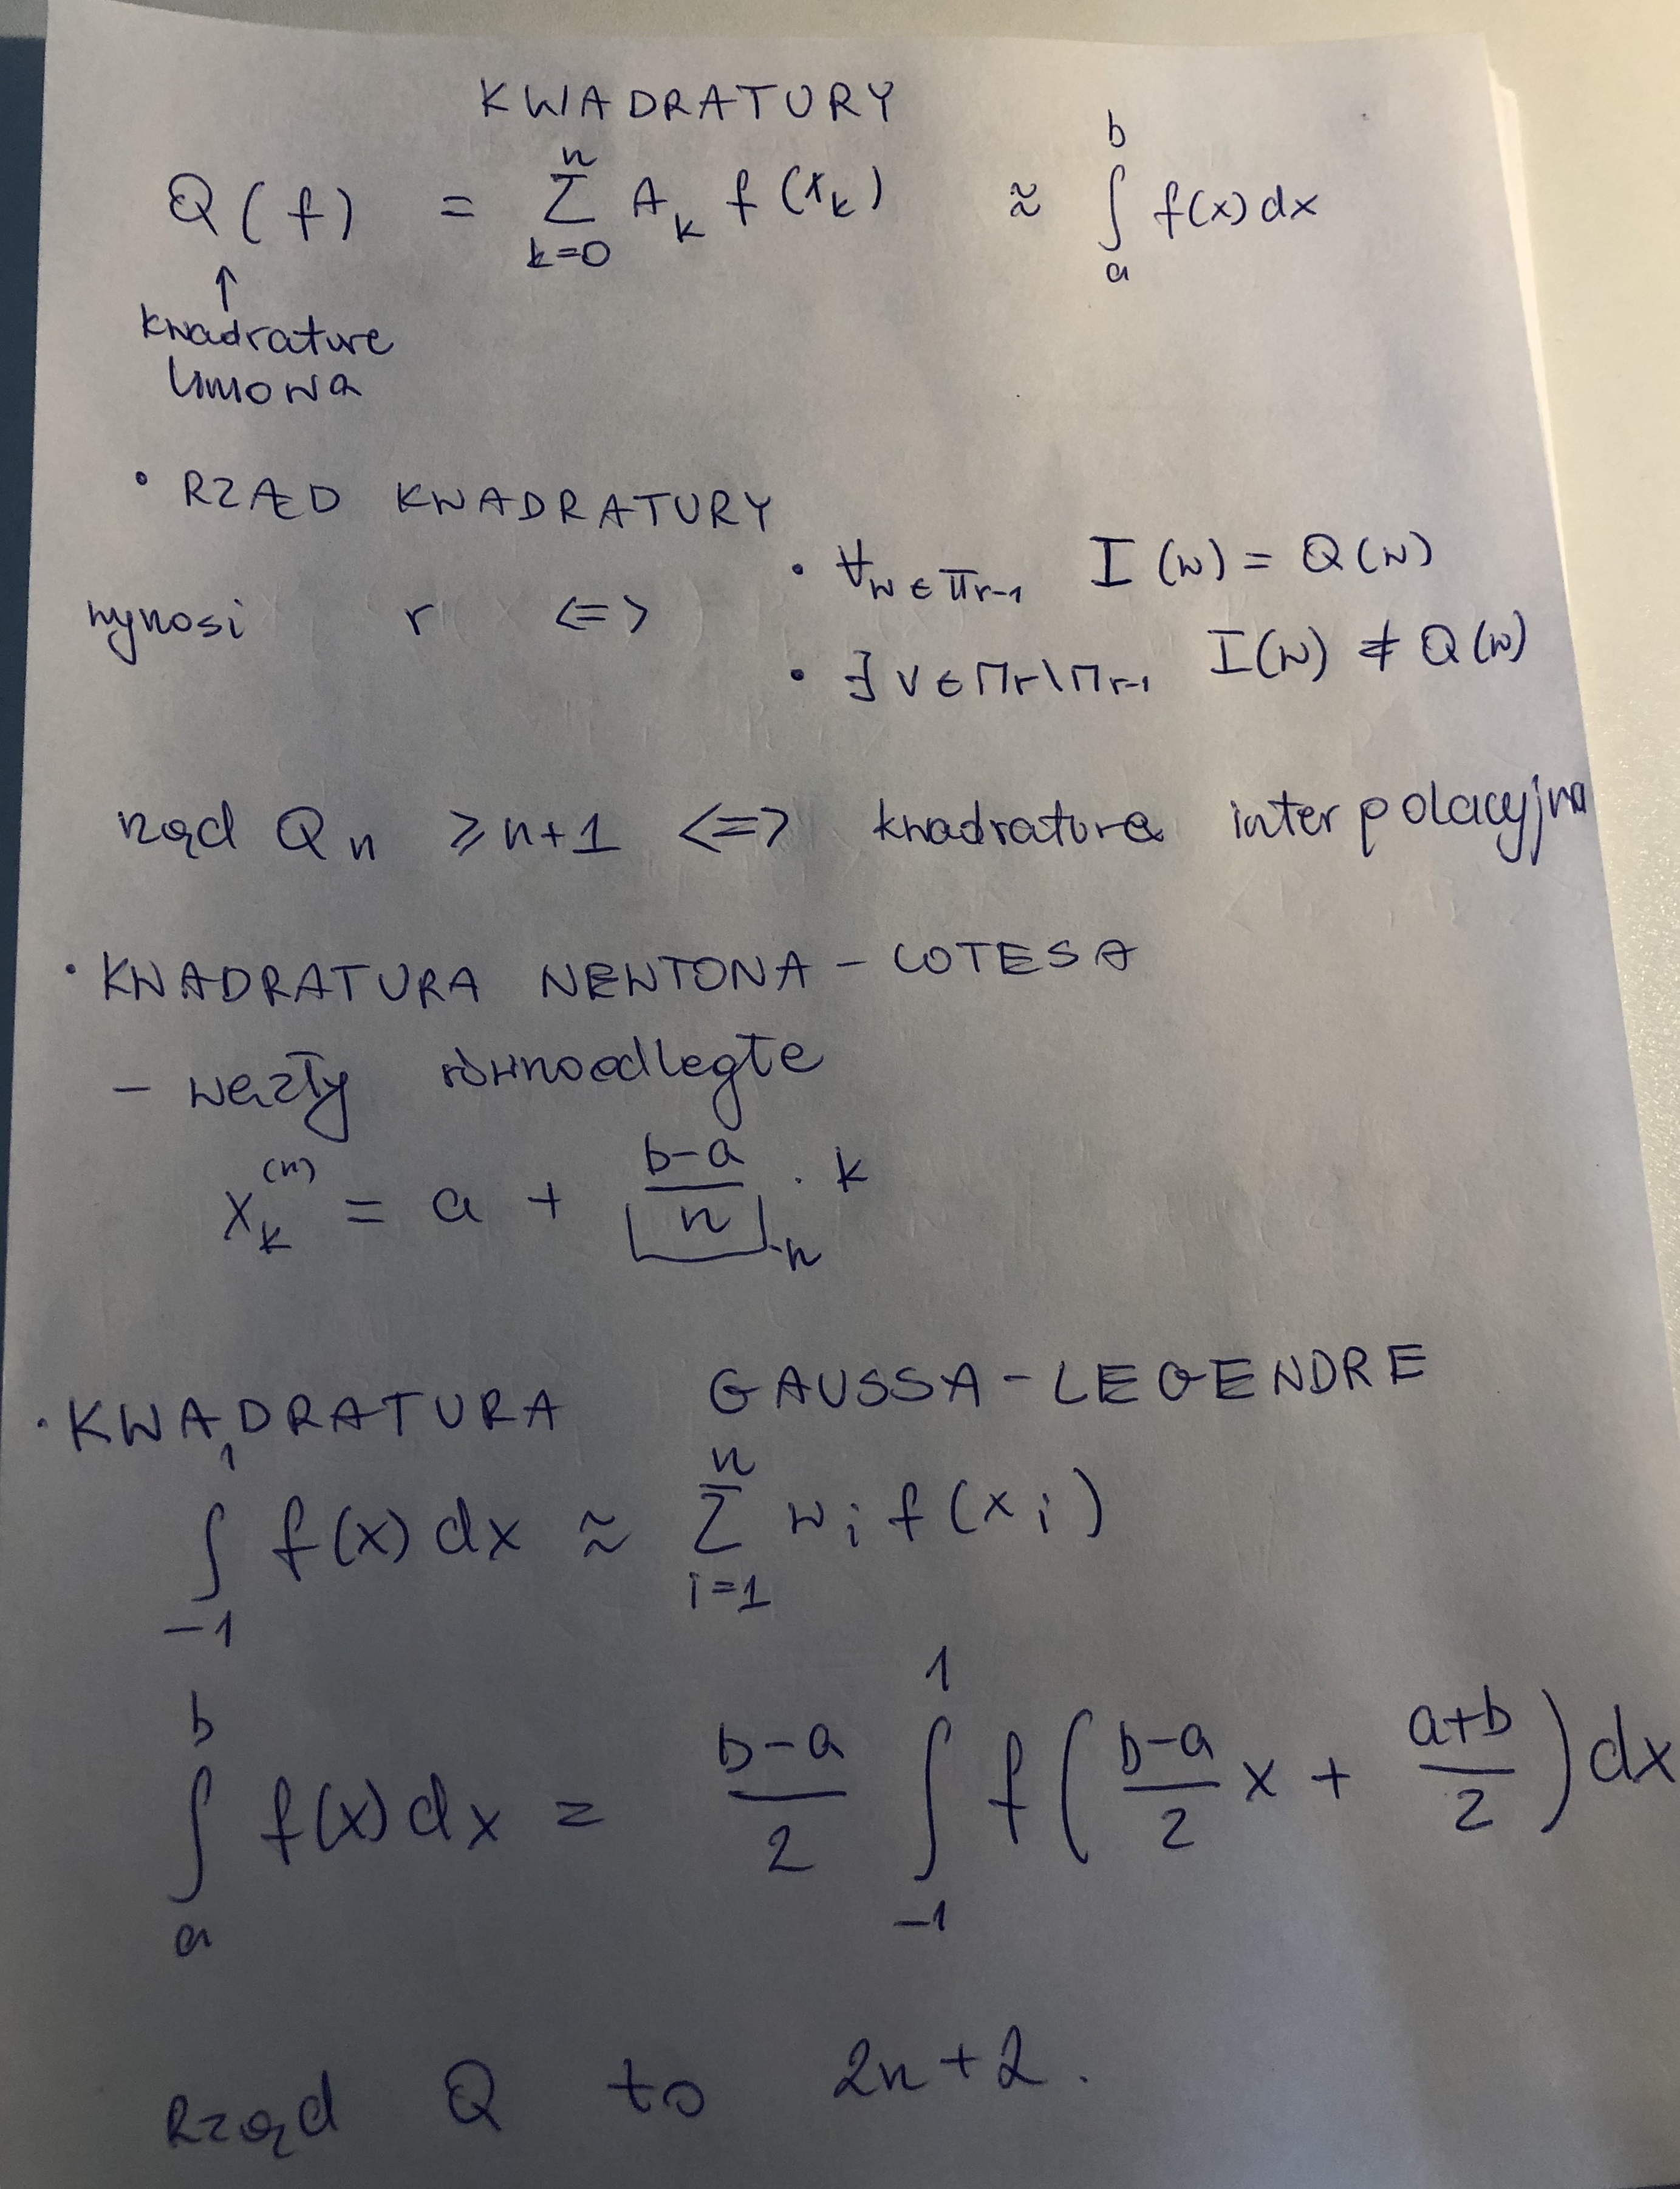 KWADRATURY
Q(f) = ∑_{k=0}^{n} A_k f(x_k) ≈ ∫_a^b f(x)dx
↑
kwadratura
liniowa
• RZĄD KWADRATURY
wynosi r <=> • ∀_{w ∈ Π_{r-1}} I(w) = Q(w)
• ∃ v ∈ Π_r \ Π_{r-1} I(w) ≠ Q(w)
rząd Q_n ⩾ n+1 <=> kwadratura interpolacyjna
• KWADRATURA NEWTONA - COTESA
- węzły równoodległe
x_k^{(n)} = a + \frac{b-a}{n} · k
h
• KWADRATURA GAUSSA - LEGENDRE
∫_{-1}^{1} f(x) dx ≈ ∑_{i=1}^{n} w_i f(x_i)
∫_a^b f(x) dx = \frac{b-a}{2} ∫_{-1}^{1} f(\frac{b-a}{2} x + \frac{a+b}{2}) dx
Rząd Q to 2n+2.